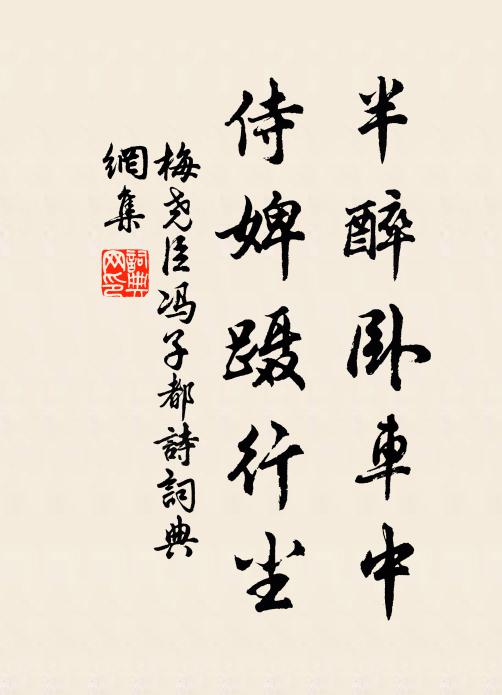 半醉卧車中
侍婢蹑行尘
梅尧臣冯子都詩詞典
網集
詞典
网印